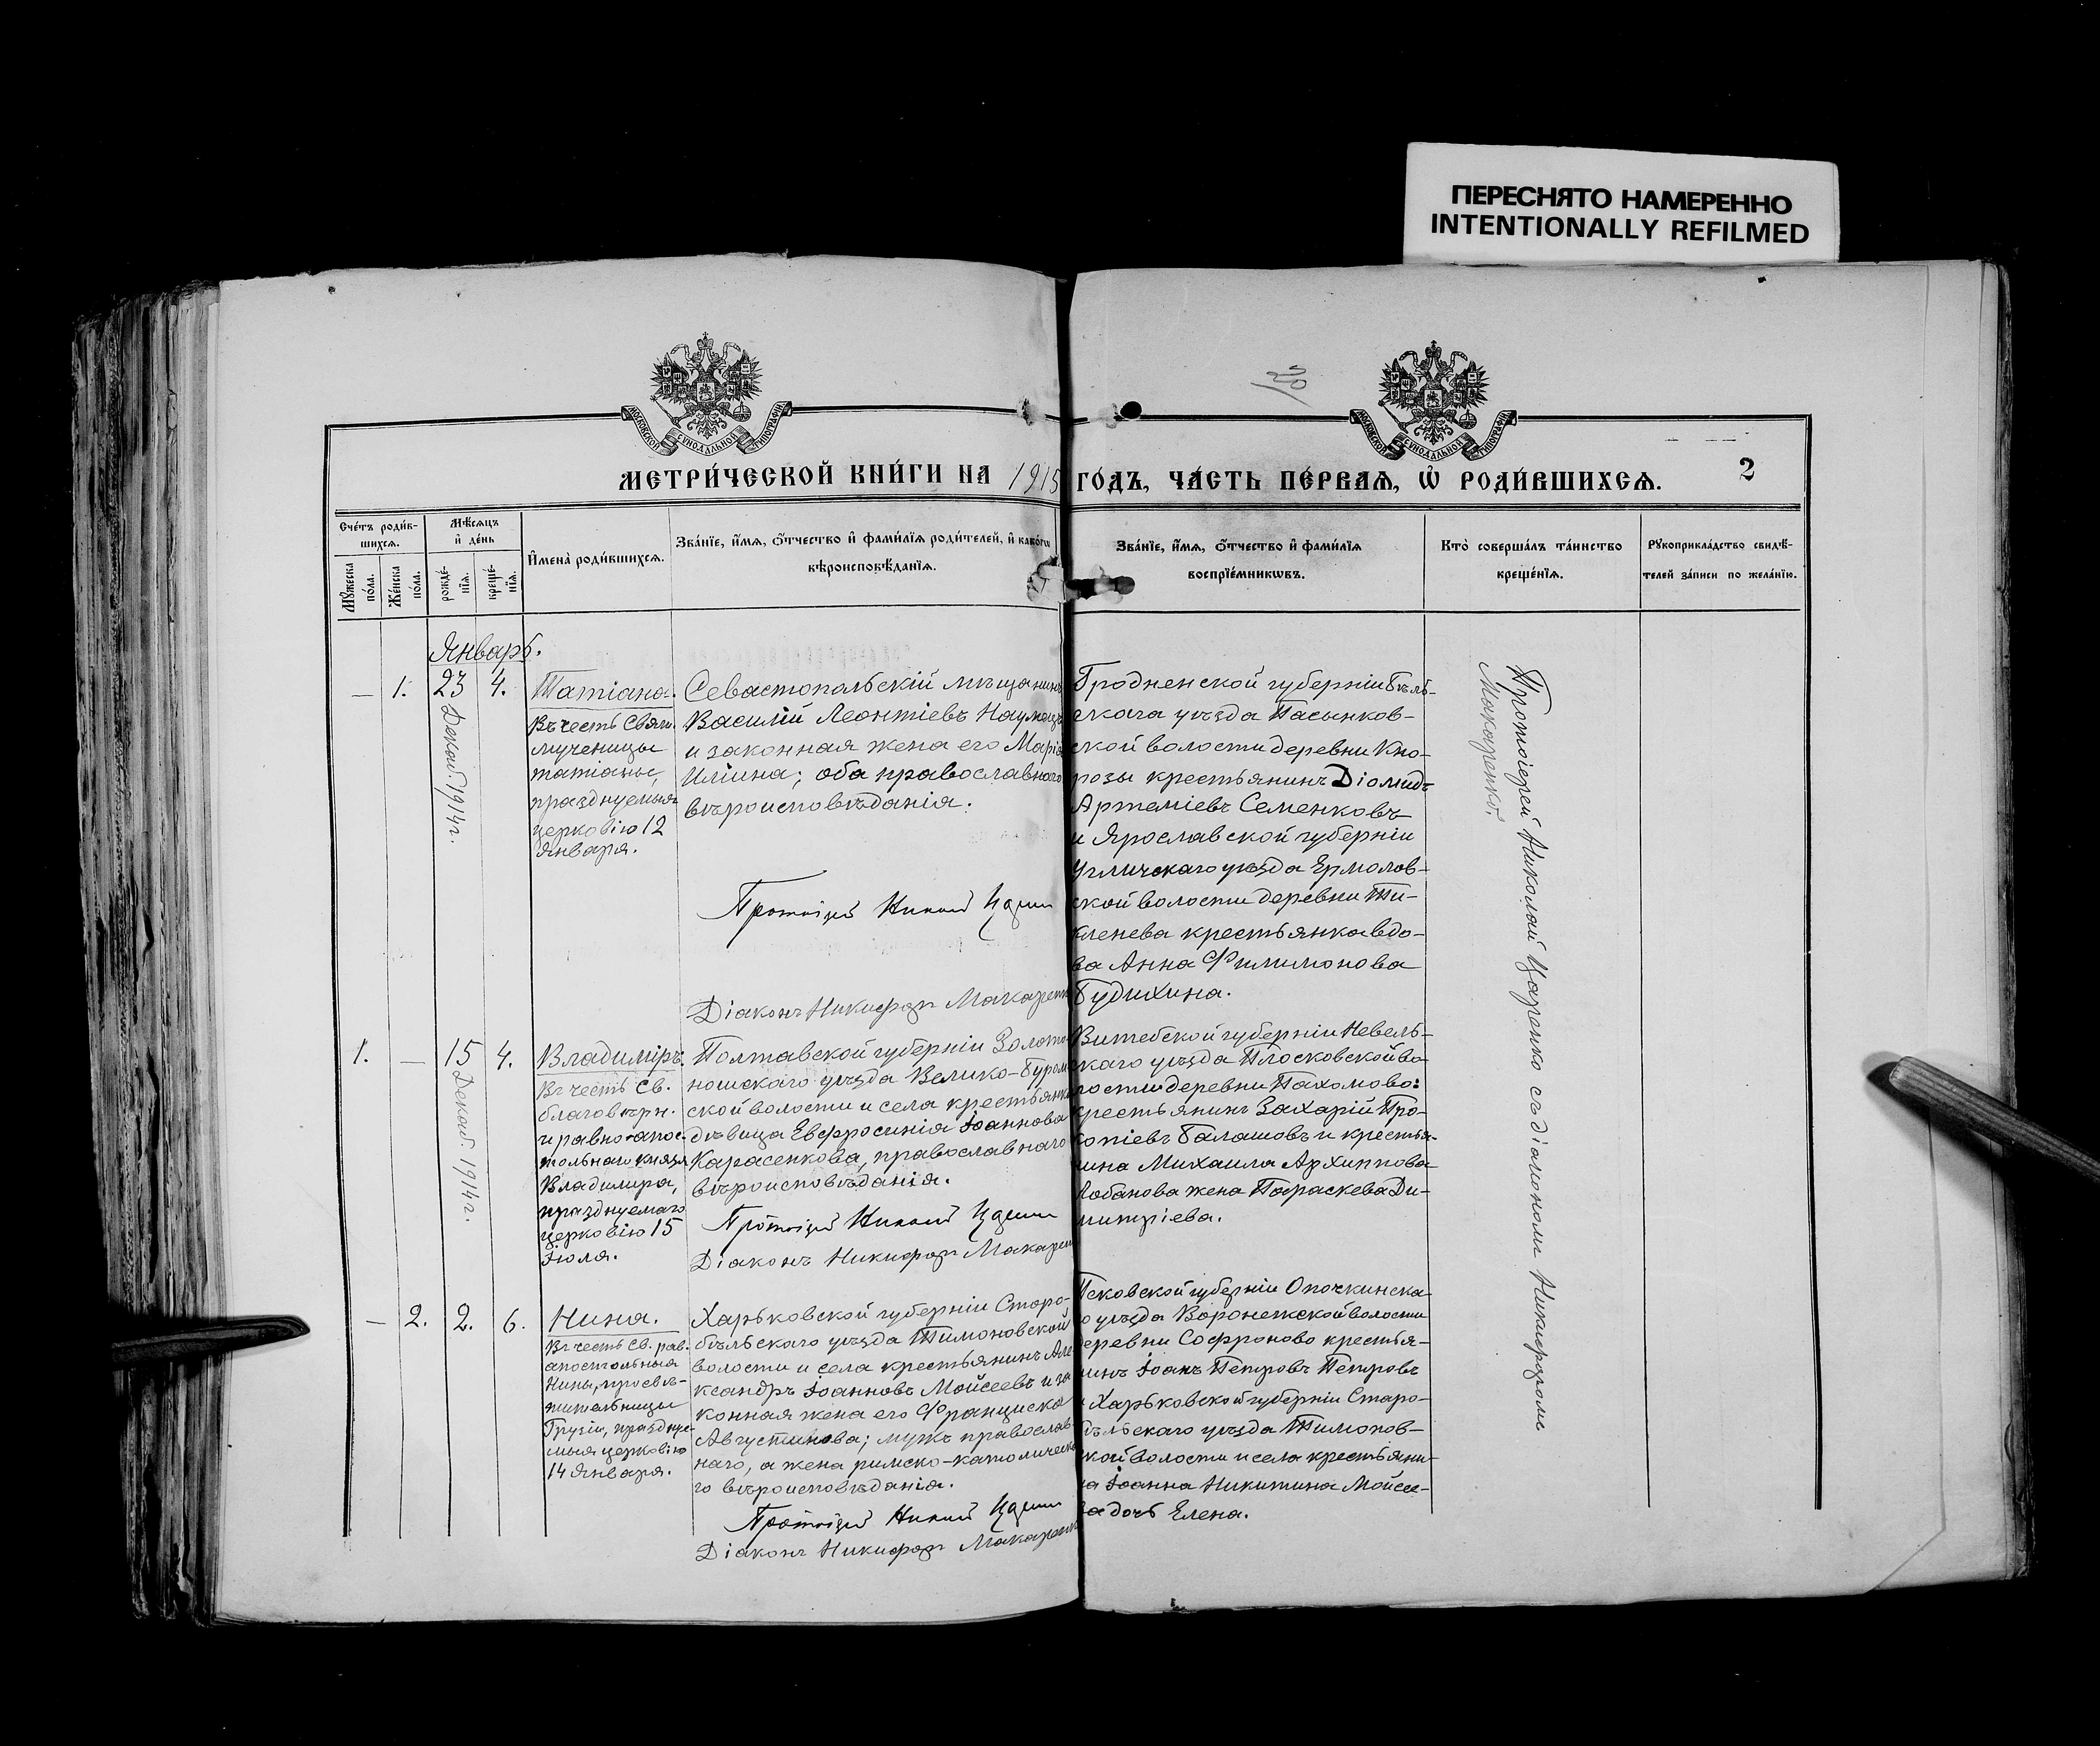 ПЕРЕСНЯТО НАМЕРЕННО
INTENTIONALLY REFILMED
МОСКОВСКОЙ СѴНОДАЛЬНОЙ ТИПОГРАФІИ
МОСКОВСКОЙ СѴНОДАЛЬНОЙ ТИПОГРАФІИ
МЕТРИ́ЧЕСКОЙ КНИ́ГИ НА 1915 ГО́ДЪ, ЧА́СТЬ ПЕ́РВАѦ, Ѡ҆ РОДИ́ВШИХСѦ.
2
Сче́тъ роди́в-
шихсѧ.
Мꙋ́жеска
по́ла.
Же́нска
по́ла.
Мѣ́сѧцъ
и҆ де́нь
рожде́-
нїѧ.
креще́-
нїѧ.
И҆мена̀ роди́вшихсѧ.
Зва́нїе, и҆́мѧ, ѻ҆́тчество и҆ фами́лїѧ роди́телей, и҆ како́гѡ
вѣроисповѣ́данїѧ.
Зва́нїе, и҆́мѧ, ѻ҆́тчество и҆ фами́лїѧ
воспрїе́мникѡвъ.
Кто̀ соверша́лъ та́инство
креще́нїѧ.
Рꙋкоприкла́дство свидѣ́-
телей за́писи по жела́нїю.
Январь.
— 1. 23 4.
Декаб. 1914 г.
Татіана.
Въ честь Свят.
мученицы
Татіаны,
празднуемыя
церковію 12
Января.
Севастопольскій мѣщанинъ
Василій Леонтіевъ
и законная жена его Марія
Иліина; оба православного
вѣроисповѣданія.
Протоіерей Николай
Діаконъ Никифоръ Макаренко
Гродненской губерніи Бѣль-
скага уѣзда Пасынков-
ской волости деревни Кно-
розы крестьянинъ Діомидъ
Артеміевъ Семенковъ
и Ярославской губерніи
Угличскаго уѣзда Ермолов-
ской волости деревни Ти-
кленева крестьянка вдо-
ва Анна Филимонова
Будихина.
Протоіерей Николай Царенко съ діакономъ Никифоромъ
Макаренко.
1. — 15 4.
Декаб. 1914 г.
Владиміръ.
Въ честь Св.
благовѣрн.
и равноапос-
тольнаго князя
Владимира,
празднуемаго
церковію 15
Іюля.
Полтавской губерніи Золото-
ношскаго уѣзда Велико-Буром-
ской волости и села крестьянка
дѣвица Евфросинія Іоаннова
Карасенкова, православнаго
вѣроисповѣданія.
Протоіерей Николай
Діаконъ Никифоръ Макаренко
Витебской губерніи Невель-
скаго уѣзда Плосковской во-
лости деревни Пахомово:
крестьянинъ Захарій Про-
копіевъ Балашовъ и крестья-
нина Михаила Архиппова
Лобанова жена Параскева Ди-
митріева.
— 2. 2. 6.
Нина.
Въ честь Св. рав.
апостольныя
Нины, просвѣ-
тительницы
Грузіи, праздну-
емыя церковію
14 Января.
Харьковской губерніи Старо-
бѣльскаго уѣзда Тимоновской
волости и села крестьянинъ Але-
ксандръ Іоанновъ Мойсеевъ и за-
конная жена его Франциска
Августинова; мужъ православ-
наго, а жена римско-католическа-
го вѣроисповѣданія.
Протоіерей Николай
Діаконъ Никифоръ Макаренко
Псковской губерніи Опочкинска-
го уѣзда Воронежской волости
деревни Софроново крестья-
нинъ Іоанъ Петровъ Петровъ
и Харьковской губерніи Старо-
бѣльскаго уѣзда Тимонов-
ской волости и села крестьяни-
на Іоанна Никитина Мойсе-
ва дочь Елена.